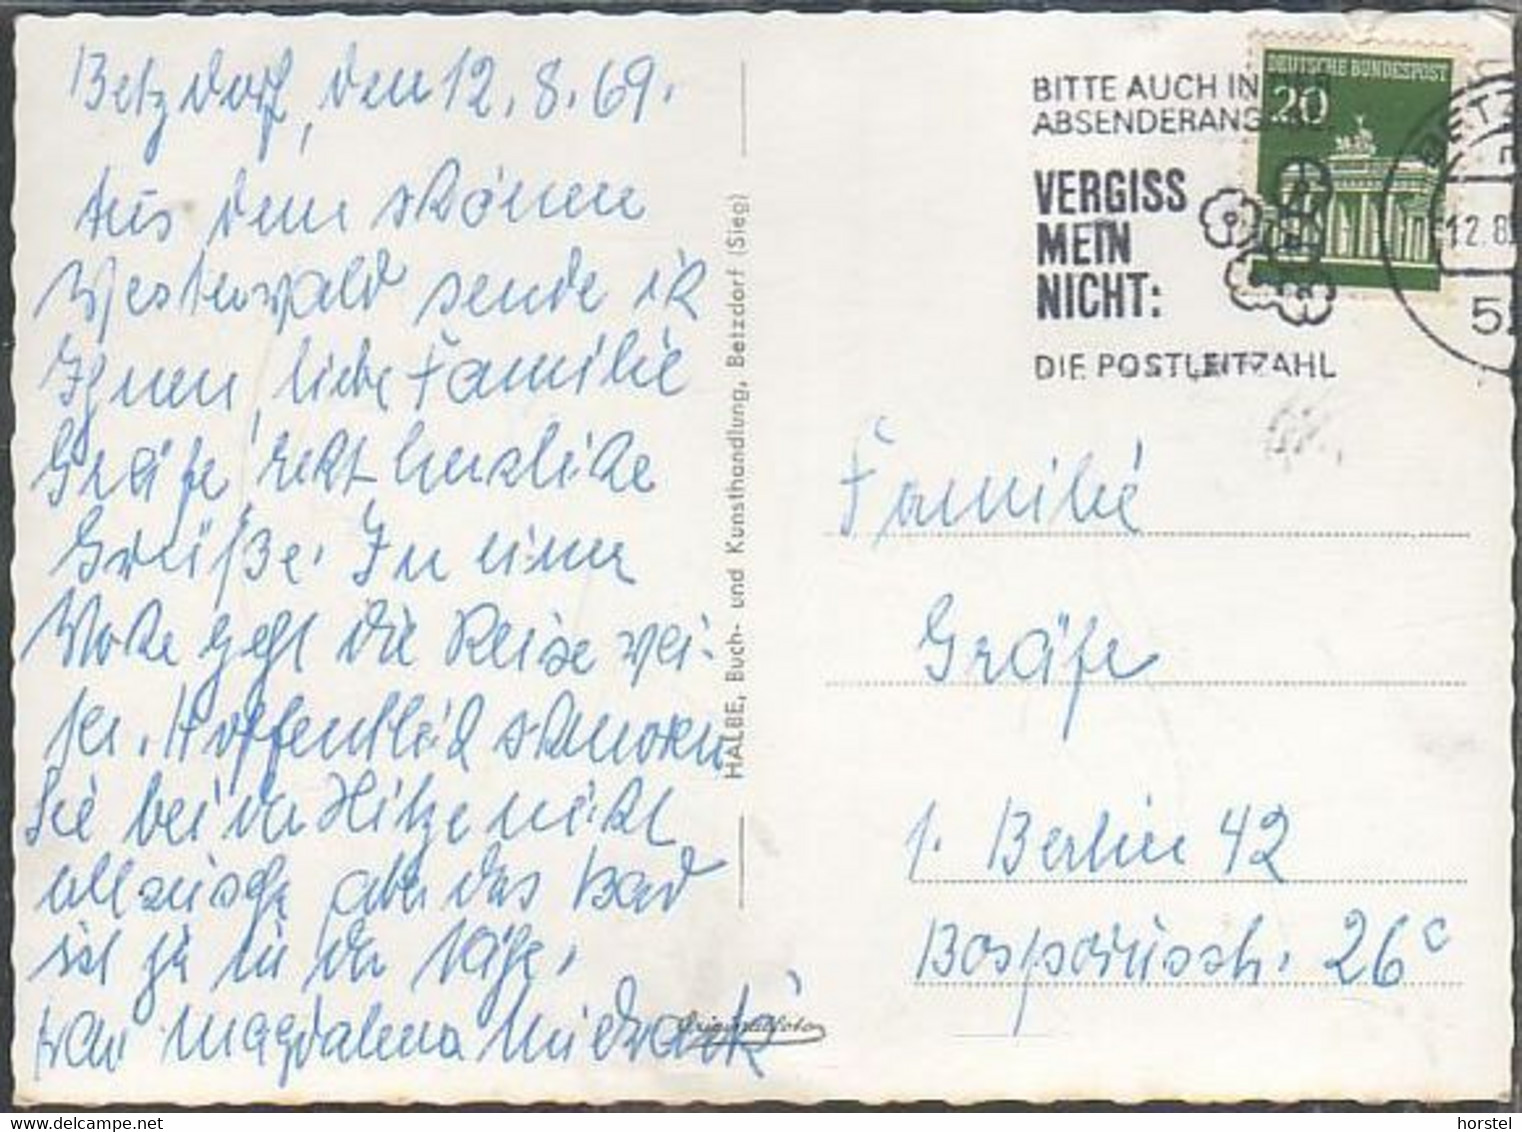 Betzdorf, den 12. 8. 69.
Aus dem schönen
Westerwald sende ich
Ihnen, liebe Familie
Gräfe, recht herzliche
Grüße. In einer
Woche geht die Reise wei-
ter. Hoffentlich schmoren
Sie bei der Hitze nicht
allzusehr, aber das Bad
ist ja in der Nähe.
Magdalena
HALBE, Buch- und Kunsthandlung, Betzdorf (Sieg)
Originalfoto
BITTE AUCH IN
ABSENDERANG
VERGISS
MEIN
NICHT:
DIE POSTLEITZAHL
DEUTSCHE BUNDESPOST
20
BETZ
12.8
Familie
Gräfe
1. Berlin 42
26c
horstel